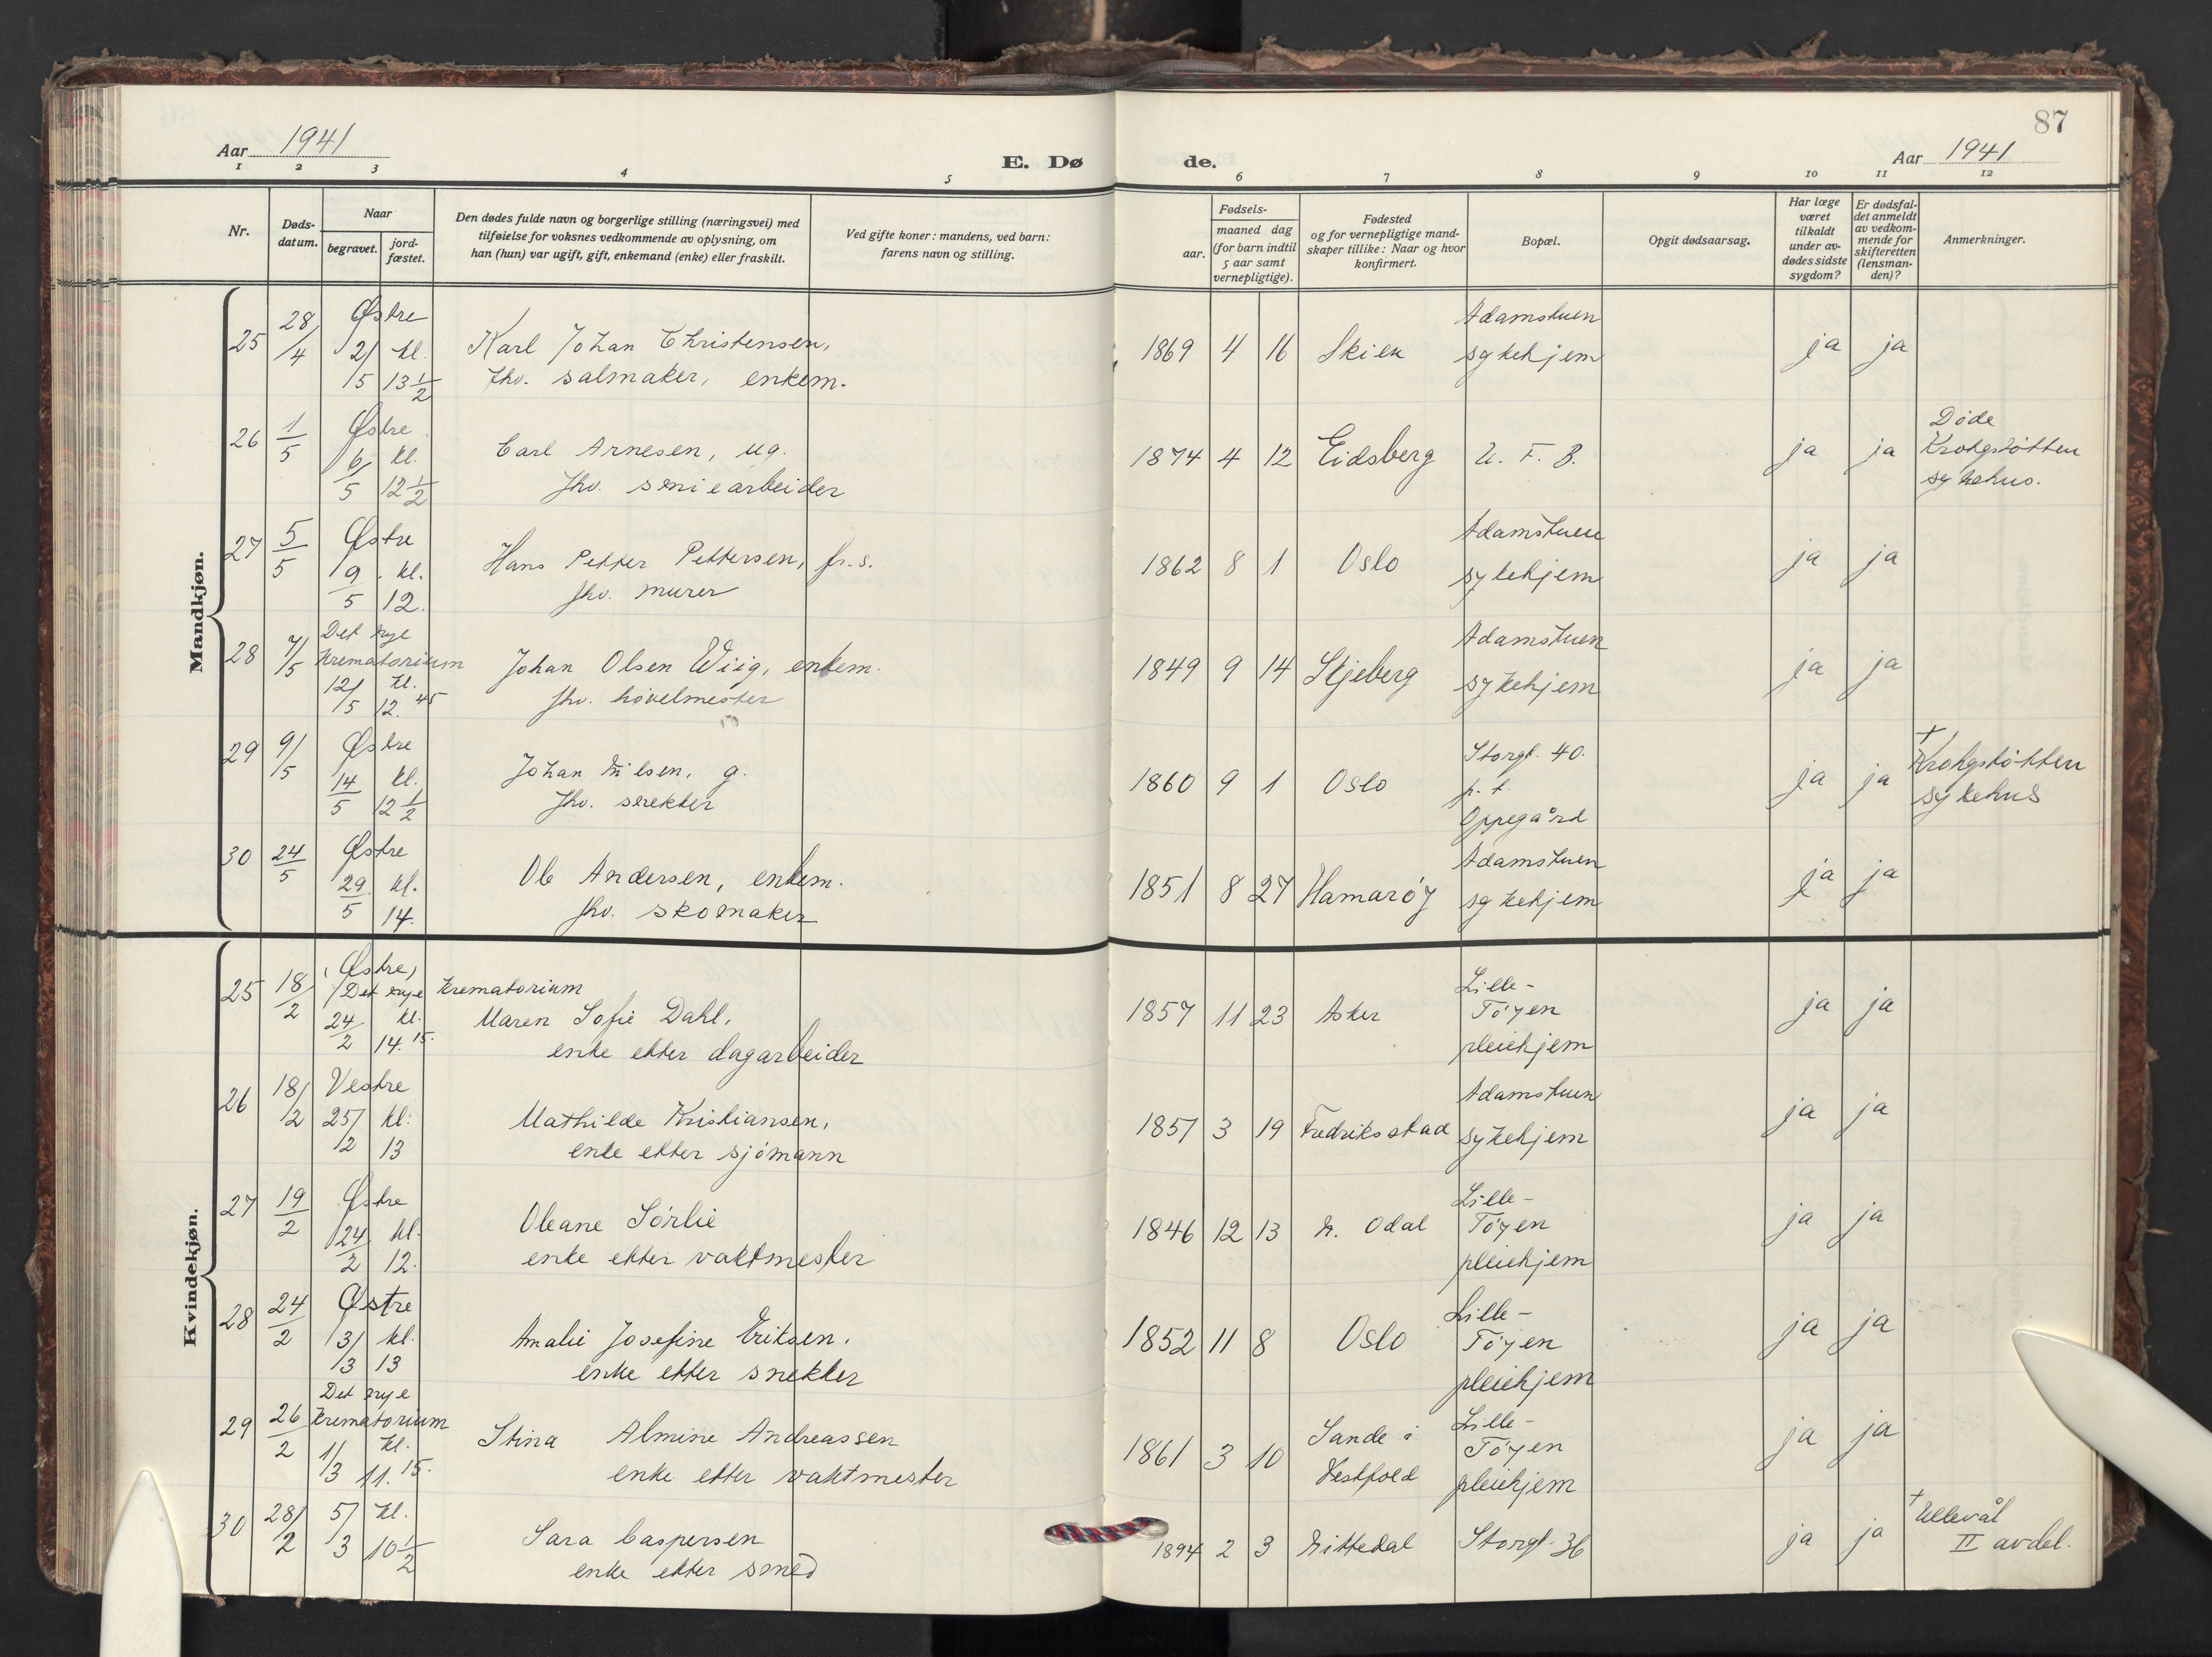 Aar 1941
E. Dø
de.
87
Aar 1941
1 2 3 4 5 6 7 8 9 10 11 12
Nr.
Døds-
datum.
Naar
begravet.
jord-
fæstet.
Den dødes fulde navn og borgerlige stilling (næringsvei) med
tilføielse for voksnes vedkommende av oplysning, om
han (hun) var ugift, gift, enkemand (enke) eller fraskilt.
Ved gifte koner: mandens, ved barn:
farens navn og stilling.
Fødsels-
aar.
maaned dag
(for barn indtil
5 aar samt
vernepligtige).
Fødested
og for vernepligtige mand-
skaper tillike: Naar og hvor
konfirmert.
Bopæl.
Opgit dødsaarsag.
Har læge
været
tilkaldt
under av-
dødes sidste
sygdom?
Er dødsfal-
det anmeldt
av vedkom-
mende for
skifteretten
(lensman-
den)?
Anmerkninger.
Mandkjøn.
25 28/4 Østre
2/5 kl. 13 1/2
Karl Johan Christensen,
fhv. salmaker, enkem.
1869 4 16 Skien
Adamstuen
sykehjem
ja ja
26 1/5 Østre
6/5 kl. 12 1/2
Carl Arnesen, ug.
fhv. seniearbeider
1874 4 12 Eidsberg U. F. B. ja ja
Døde
Krohgstøtten
sykehus.
27 5/5 Østre
9/5 kl. 12.
Hans Petter Pettersen, fr.s.
fhv. murer
1862 8 1 Oslo
Adamstuen
sykehjem
ja ja
28 7/5 Det nye
Krematorium
12/5 kl. 12.45
Johan Olsen Wiig, enkem.
fhv. høvelmester
1849 9 14 Skjeberg
Adamstuen
sykehjem
ja ja
29 9/5 Østre
14/5 kl. 12 1/2
Johan Nilsen, g.
fhv. snekker
1860 9 1 Oslo
Storgt. 40.
p. t.
Oppegård
ja ja
†
Krohgstøtten
sykehus
30 24/5 Østre
29/5 kl. 14.
Ole Andersen, enkem.
fhv. skomaker
1851 8 27 Hamarøy
Adamstuen
sykehjem
ja ja
Kvindekjøn.
25 18/2 (Østre)
Det nye Krematorium
24/2 kl. 14.15.
Maren Sofie Dahl,
enke etter dagarbeider
1857 11 23 Asker
Lille-
Tøyen
pleiehjem
ja ja
26 18/2 Vestre
25/2 kl. 13
Mathilde Kristiansen,
enke etter sjømann
1857 3 19 Fredriksstad
Adamstuen
sykehjem
ja ja
27 19/2 Østre
24/2 kl. 12.
Oleane Sørlie
enke etter vaktmester
1846 12 13 N. Odal
Lille-
Tøyen
pleiehjem
ja ja
28 24/2 Østre
3/3 kl. 13
Amalie Josefine Eriksen.
enke etter snekker
1852 11 8 Oslo
Lille-
Tøyen
pleiehjem
ja ja
29 26/2 Det nye
Krematorium
1/3 kl. 11.15.
Stina Almine Andreassen
enke etter vaktmester
1861 3 10 Sande i
Vestfold
Lille-
Tøyen
pleiehjem
ja ja
30 28/2 5/3 kl. 10 1/2
Sara Caspersen
enke etter smed
1894 2 3 Nittedal Storgt. 36 ja ja
† Ullevål
II avdel.